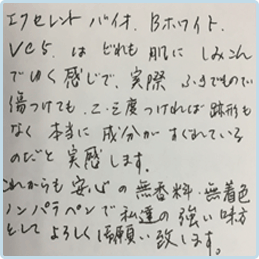 エクセレント バイオ、Bホワイト、
VC5、は どれも 肌に しみこん
でゆく感じで、実際 ふきでもので
傷つけても、2・3度つければ跡形も
なく 本当に 成分が すぐれている
のだと 実感します。
これからも 安心の 無香料・無着色
ノンパラペンで 私達の 強い味方
として よろしく御願い致します。